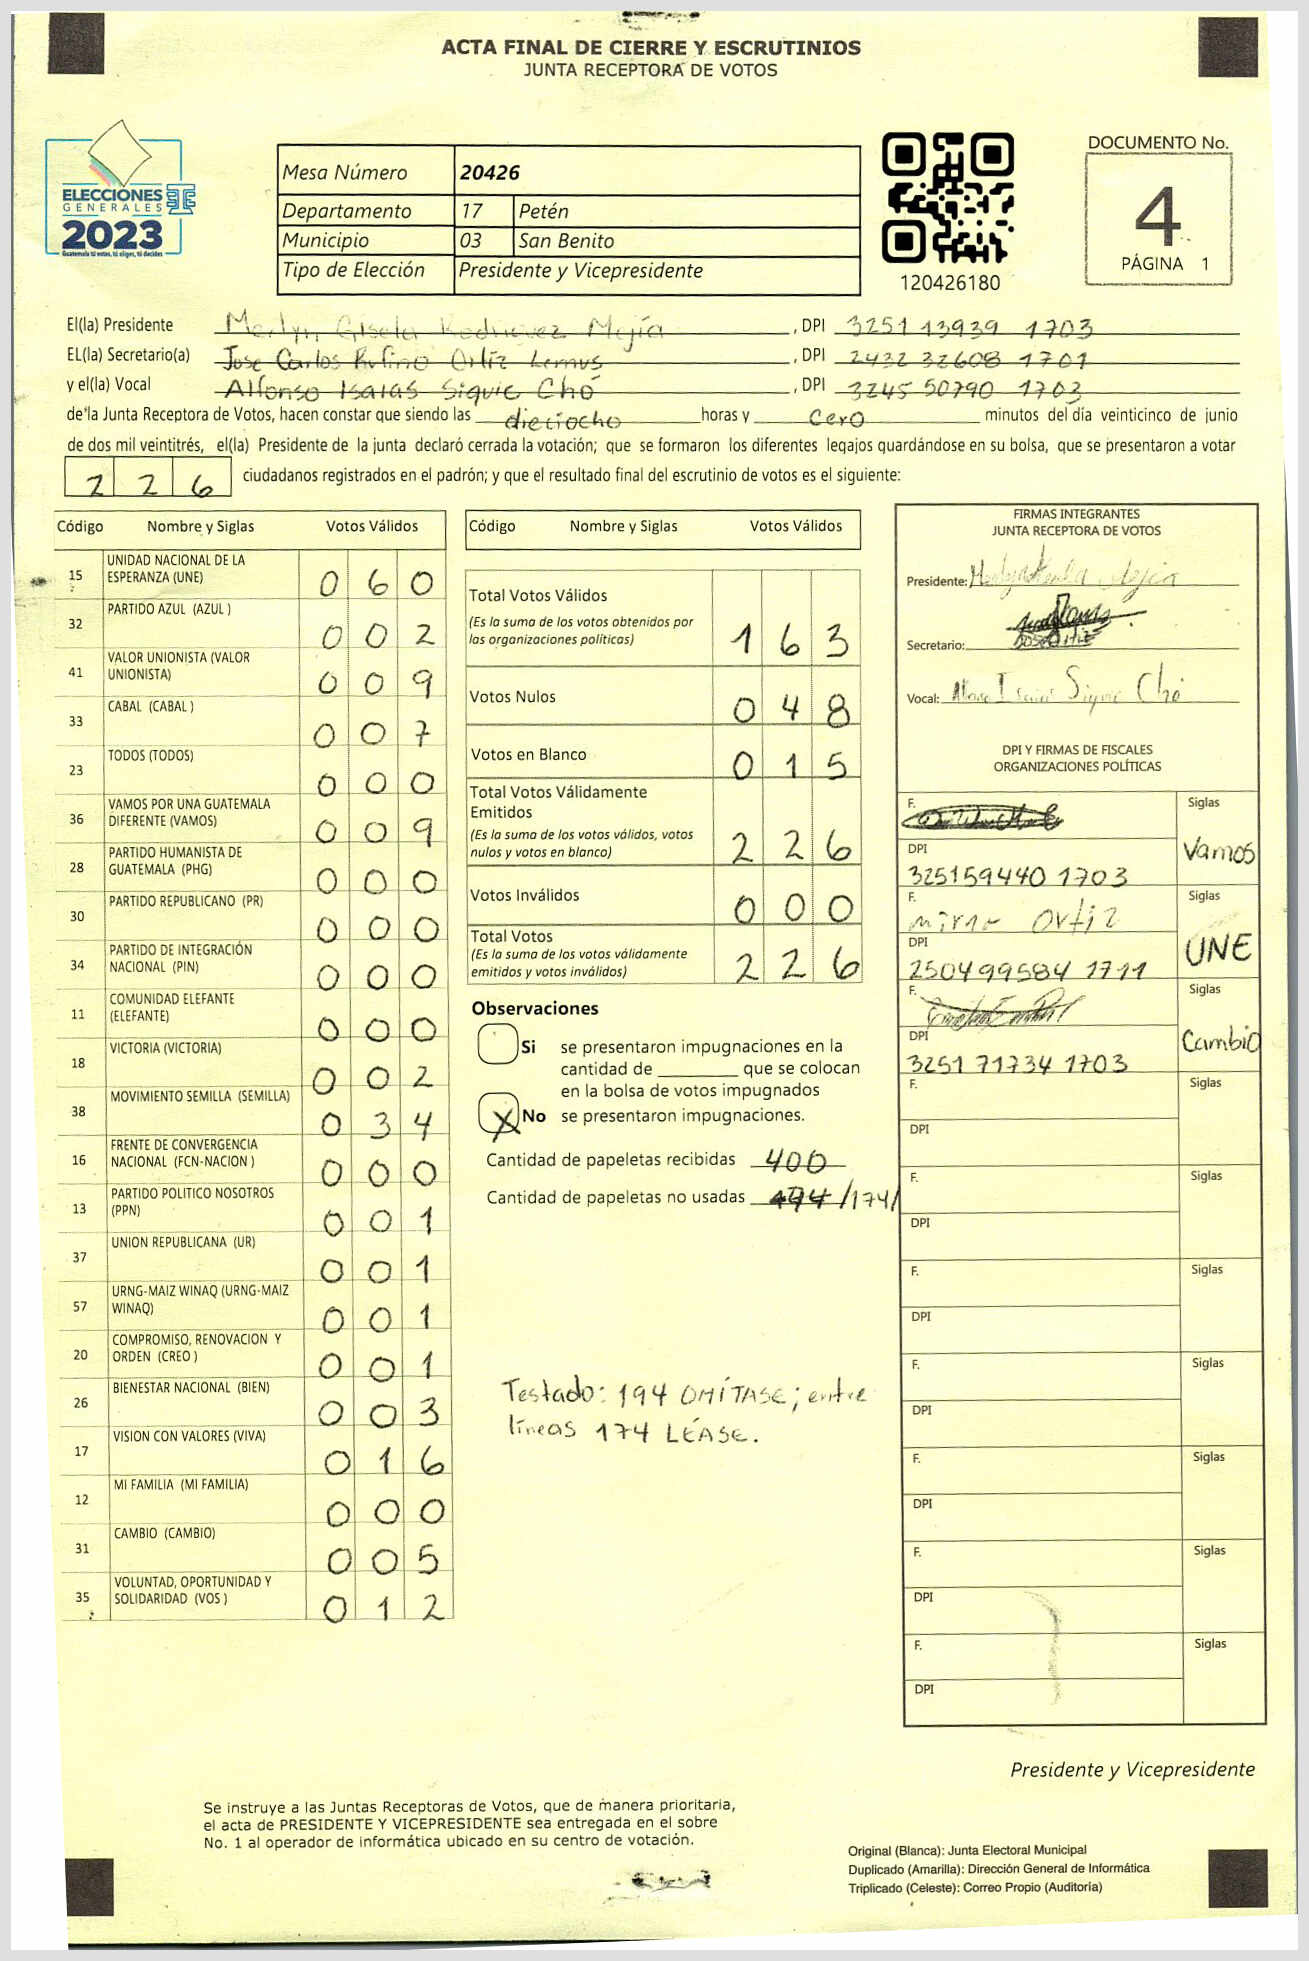 ACTA FINAL DE CIERRE Y ESCRUTINIOS
JUNTA RECEPTORA DE VOTOS
ELECCIONES
GENERALES
2023
Guatemala tú votas, tú eliges, tú decides
Mesa Número 20426
Departamento 17 Petén
Municipio 03 San Benito
Tipo de Elección Presidente y Vicepresidente
120426180
DOCUMENTO No.
4
PÁGINA 1
El(la) Presidente Merlyn Gisela Rodriguez Mejía, DPI 3251 13939 1703
EL(la) Secretario(a) Jose Carlos Rufino Ortíz Lemus, DPI 2432 32608 1701
y el(la) Vocal Alfonso Isaias Siquic Chó, DPI 3245 50790 1703
de la Junta Receptora de Votos, hacen constar que siendo las dieciocho horas y cero minutos del día veinticinco de junio
de dos mil veintitrés, el(la) Presidente de la junta declaró cerrada la votación; que se formaron los diferentes legajos guardándose en su bolsa, que se presentaron a votar
2 2 6 ciudadanos registrados en el padrón; y que el resultado final del escrutinio de votos es el siguiente:
Código Nombre y Siglas Votos Válidos
15 UNIDAD NACIONAL DE LA ESPERANZA (UNE) 0 6 0
32 PARTIDO AZUL (AZUL ) 0 0 2
41 VALOR UNIONISTA (VALOR UNIONISTA) 0 0 9
33 CABAL (CABAL ) 0 0 7
23 TODOS (TODOS) 0 0 0
36 VAMOS POR UNA GUATEMALA DIFERENTE (VAMOS) 0 0 9
28 PARTIDO HUMANISTA DE GUATEMALA (PHG) 0 0 0
30 PARTIDO REPUBLICANO (PR) 0 0 0
34 PARTIDO DE INTEGRACIÓN NACIONAL (PIN) 0 0 0
11 COMUNIDAD ELEFANTE (ELEFANTE) 0 0 0
18 VICTORIA (VICTORIA) 0 0 2
38 MOVIMIENTO SEMILLA (SEMILLA) 0 3 4
16 FRENTE DE CONVERGENCIA NACIONAL (FCN-NACION ) 0 0 0
13 PARTIDO POLITICO NOSOTROS (PPN) 0 0 1
37 UNION REPUBLICANA (UR) 0 0 1
57 URNG-MAIZ WINAQ (URNG-MAIZ WINAQ) 0 0 1
20 COMPROMISO, RENOVACION Y ORDEN (CREO ) 0 0 1
26 BIENESTAR NACIONAL (BIEN) 0 0 3
17 VISION CON VALORES (VIVA) 0 1 6
12 MI FAMILIA (MI FAMILIA) 0 0 0
31 CAMBIO (CAMBIO) 0 0 5
35 VOLUNTAD, OPORTUNIDAD Y SOLIDARIDAD (VOS ) 0 1 2
Código Nombre y Siglas Votos Válidos
Total Votos Válidos
(Es la suma de los votos obtenidos por
las organizaciones políticas) 1 6 3
Votos Nulos 0 4 8
Votos en Blanco 0 1 5
Total Votos Válidamente
Emitidos
(Es la suma de los votos válidos, votos
nulos y votos en blanco) 2 2 6
Votos Inválidos 0 0 0
Total Votos
(Es la suma de los votos válidamente
emitidos y votos inválidos) 2 2 6
Observaciones
Si se presentaron impugnaciones en la
cantidad de ________ que se colocan
en la bolsa de votos impugnados
X No se presentaron impugnaciones.
Cantidad de papeletas recibidas 400
Cantidad de papeletas no usadas 194 /174/
Testado: 194 OMÍTASE; entre
líneas 174 LÉASE.
FIRMAS INTEGRANTES
JUNTA RECEPTORA DE VOTOS
Presidente: Mejía
Secretario:
Vocal: Isaias Siquic Chó
DPI Y FIRMAS DE FISCALES
ORGANIZACIONES POLÍTICAS
F. Siglas
Vamos
DPI
325159440 1703
F. Mirna Ortiz Siglas
UNE
DPI
250499584 1711
F. Siglas
Cambio
DPI
3251 71734 1703
F. Siglas
DPI
F. Siglas
DPI
F. Siglas
DPI
F. Siglas
DPI
F. Siglas
DPI
F. Siglas
DPI
F. Siglas
DPI
Presidente y Vicepresidente
Se instruye a las Juntas Receptoras de Votos, que de manera prioritaria,
el acta de PRESIDENTE Y VICEPRESIDENTE sea entregada en el sobre
No. 1 al operador de informática ubicado en su centro de votación.
Original (Blanca): Junta Electoral Municipal
Duplicado (Amarilla): Dirección General de Informática
Triplicado (Celeste): Correo Propio (Auditoría)